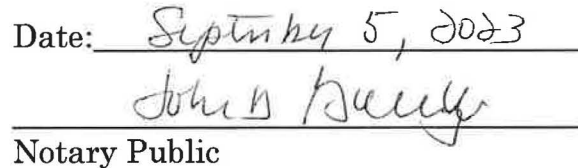 Date: September 5, 2023
John D
Notary Public